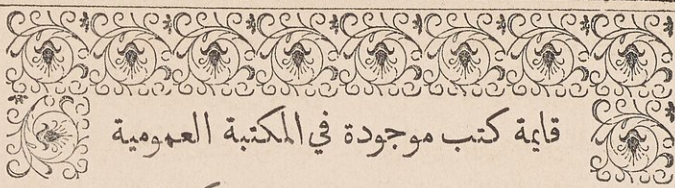 قايمة كتب موجودة في المكتبة العمومية